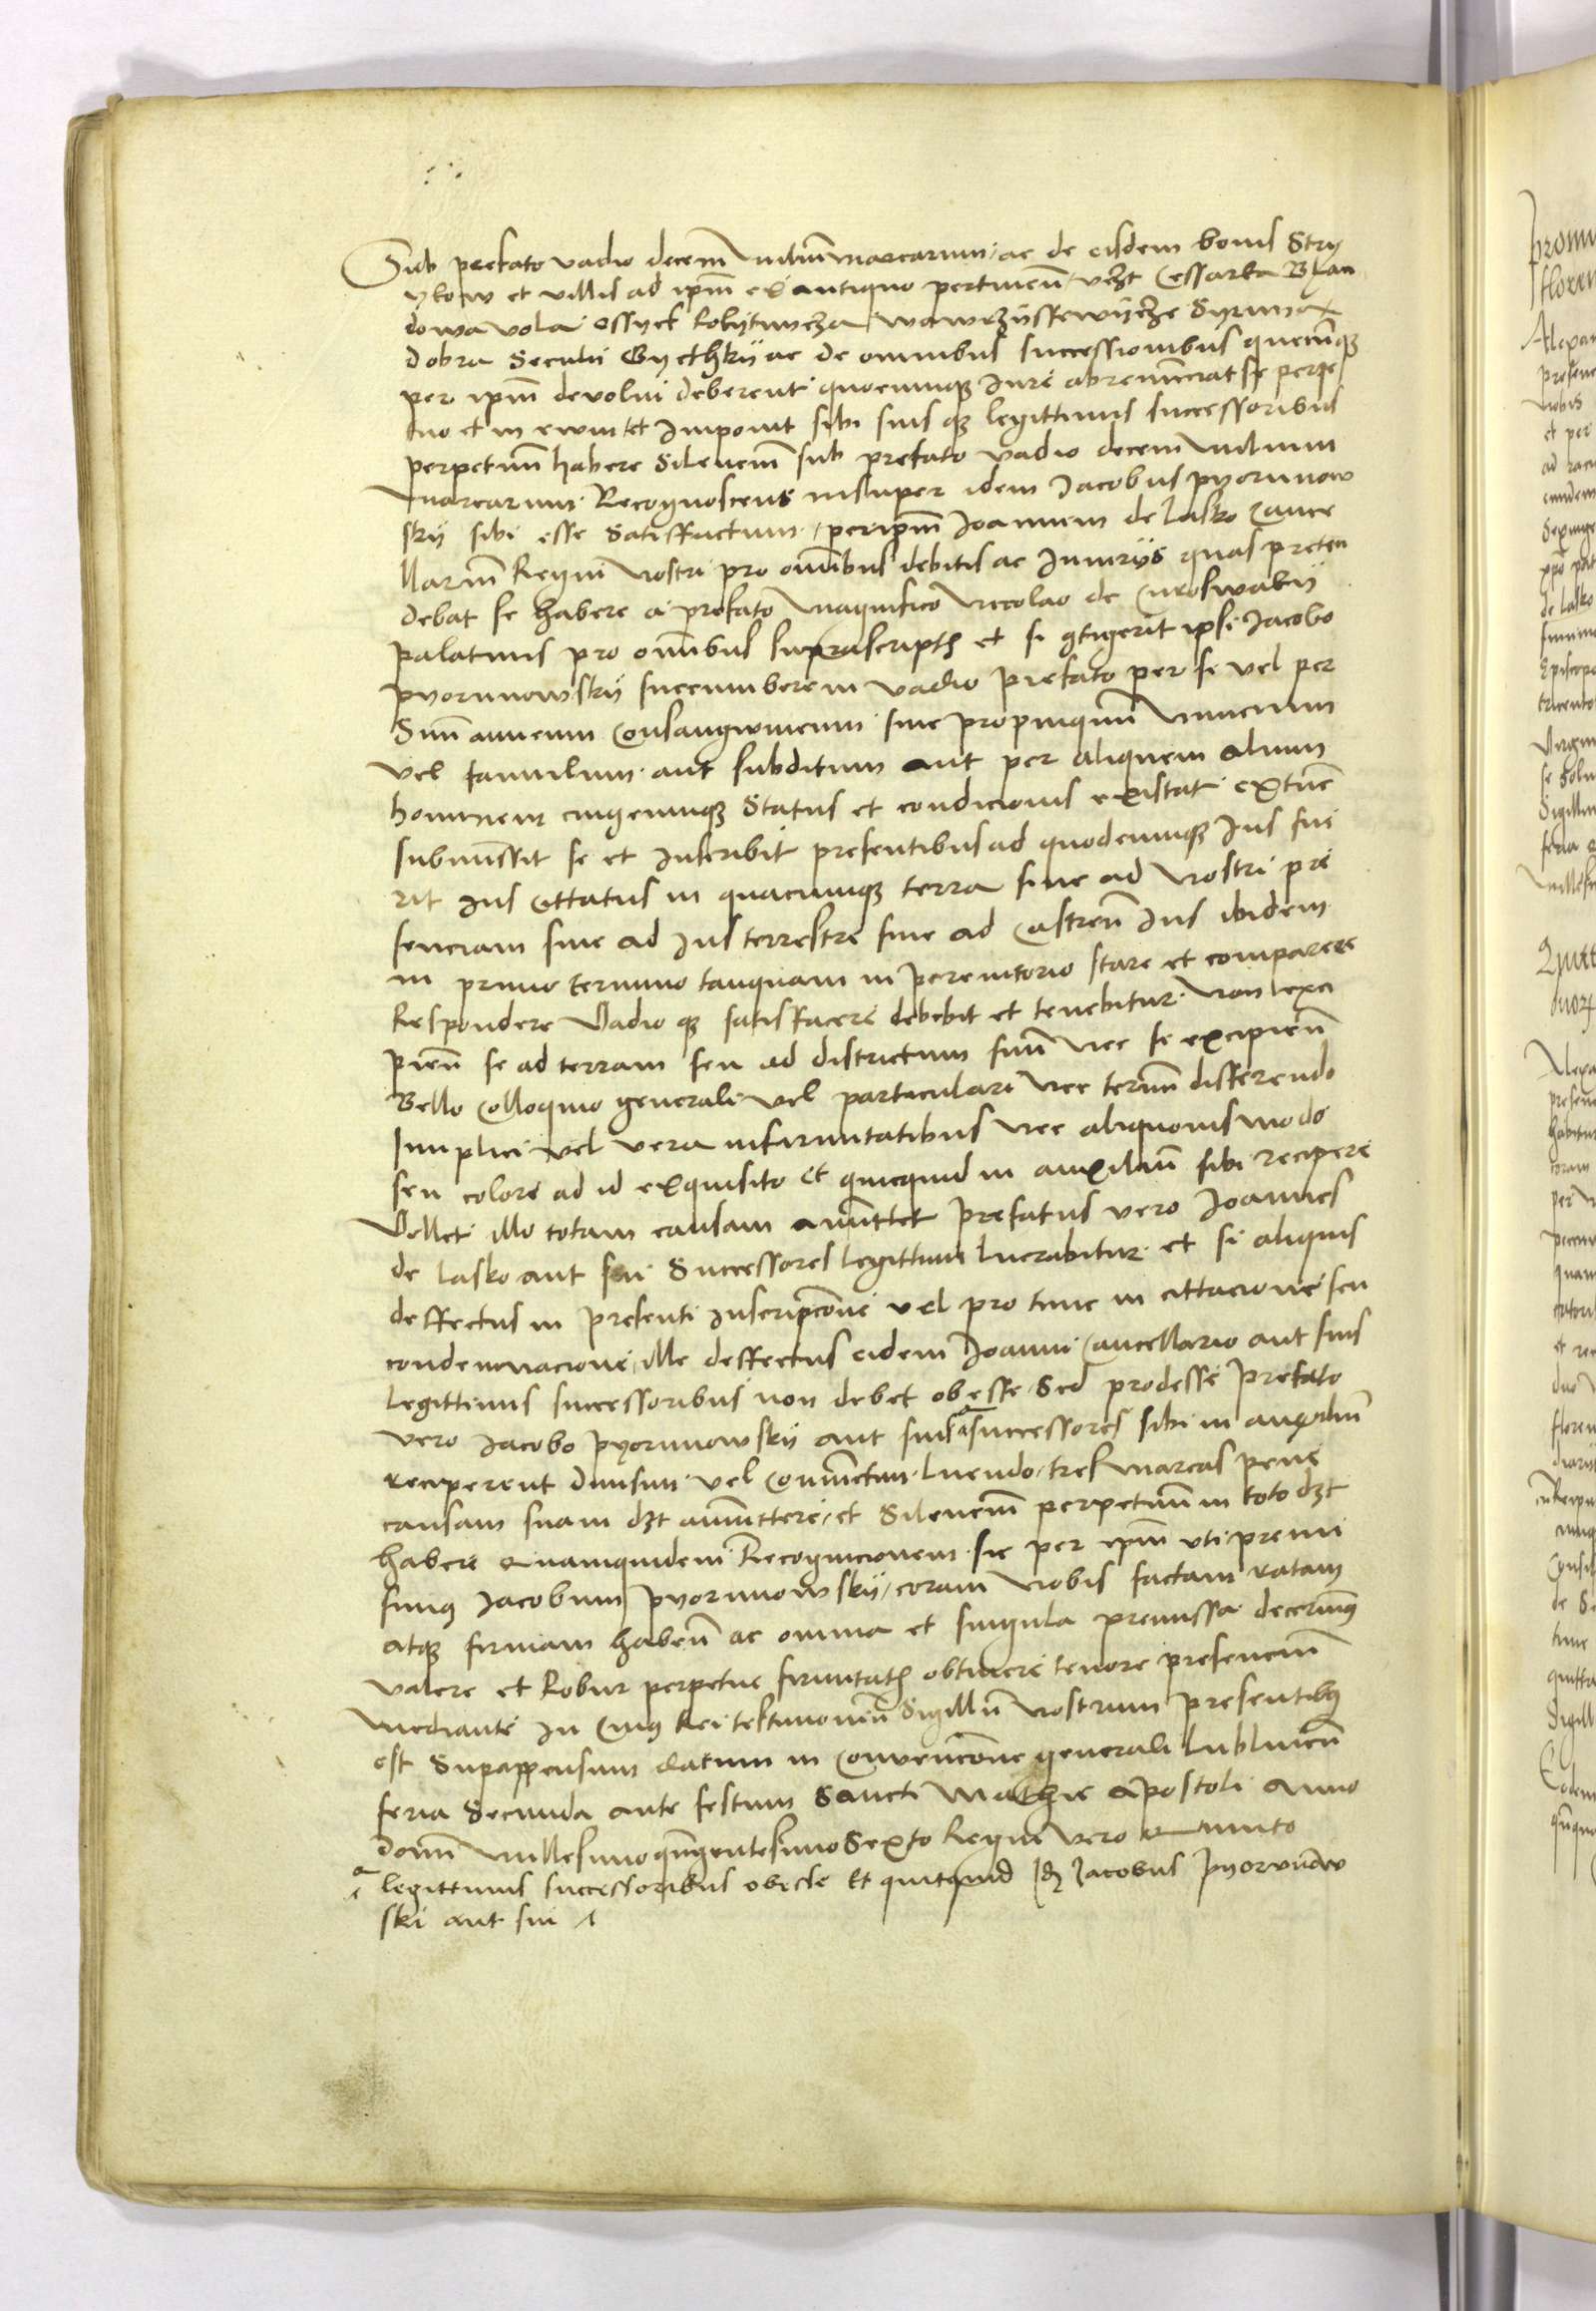 Sub prefato vadio decem milium marcarum ac de eisdem bonis Stry
ykow et villis ad ipm ex antiquo pertinen vczt Cessarka BKan
dowa vola Ossyek Kobÿtuncza
dobra Seculii Gyethkÿ ac de omnibus successionibus quecunq
per ipm devolui deberent quocunq Jure abrenunciat se perpe
tuo et in ewm et Imponit sibi suis q legittimis successoribus
perpetuum habere Silencium sub prefato vadio decem milium
marcarum Recognoscens insuper idem Jacobus pyorunow
skÿ sibi esse Satisfactum per ipm Joannem de Lasko Cance
llarium Regni nostri pro omnibus debitis ac Iniurÿs quas preten
debat se habere a prefato magnifico Nicolao de Curoswakÿ
palatinus pro omnibus suprascriptis et si contigerit ipsi Jacobo
pyorunowskÿ succumbere in vadio prefato per se vel per
Suum amicum Consangwineum siue propinquum
vel famulum aut subditum aut per aliquem alium
hominem cuiuscunq Status et condicionis existat extunc
submissit se et Inscribit presentibus ad quodcunq Ius fue
rit Ius Cittatus in quacunq terra siue ad nostri pre
senciam siue ad Ius terrestre siue ad Castren Ius ibidem
in primo termino tanquam in peremtorio stare et comparere
Respondere Vadio q satisfacere debebit et tenebitur non exci
pien se ad terram seu ad districtum suum nec se excipien
Bello Colloquio generali vel particulari nec terminum differendo
Simplici vel vera infirmitatibus nec aliquouis modo
seu colore ad id exquisito Et quicquid in auxilium sibi recipere
Vellet illo totam causam amittet prefatus vero Joannes
de Lasko aut sui Successores legittimi lucrabitur et si aliquis
deffectus in presenti Inscripcone vel pro tunc in cittacione seu
condemnacione ille deffectus eidem Joanni Cancellario aut suis
legittimis successoribus non debet obesse Sed prodesse prefato
vero Jacobo pyorunowskÿ aut suis successores sibi in auxilium
reciperent diuisim vel Coniunctim luendo tres marcas pene
causam suam dzt amittere et Silencium perpetuum in toto dzt
habere Quamquidem Recognicionem sic per ipm vti premi
simus Jacobum pyorunowskÿ coram nobis factam ratam
atq firmam haben ac omnia et singula premissa decernimus
valere et Robur perpetue firmitatis obtinere tenore presencium
mediante In Cuius Rei testimonium Sigillum nostrum presentibus
est Subappensum datum in Convencone generali Lublinen
feria Secunda ante festum Sancti Mathie Apostoli Anno
domini millesimo quingentesimo Sexto Regni vero Quinto
legittimis successoribus obesse Et quitquid idem Jacobus pyorunow
ski aut sui